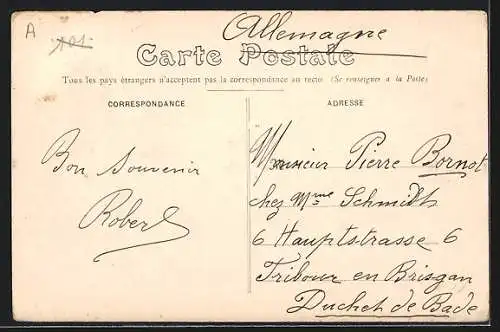 A
Allemagne
Carte Postale
Tous les pays étrangers n'acceptent pas la correspondance au recto (Se renseigner à la Poste)
CORRESPONDANCE
Bon Souvenir
Robert
ADRESSE
Monsieur Pierre Bornot
chez Mme Schmidts
6 Hauptstrasse 6
Fribour en Brisgan
Duchet de Bade